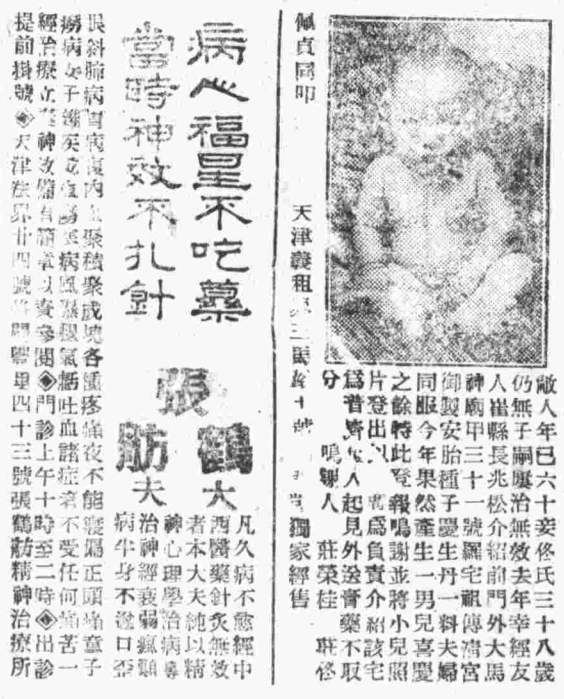 敝人年已六十妾佟氏三十八歲
仍無子嗣屢治無效去年幸經友
人崔縣長兆松介紹前門外大馬
神廟甲三十一號羅宅祖傳清宮
御製安胎種子慶生丹一料夫婦
同服今年果然產生一男兒喜慶
之餘特此登報鳴謝並將小兒照
片登出以 為負責介紹該宅
為普濟 人起見外送膏藥不取
分 鳴謝人 莊榮桂 莊佟
佩貞同叩
天津 租 三 號 獨家經售
病人福星不吃藥
當時神效不扎針
張鶴舫大夫
凡久病不愈經中
西醫藥針灸無效
者本大夫純以精
神心理學治病專
治神經衰弱瘋顛
病半身不遂口歪
眼斜肺病胃病 內 聚積聚成塊各種疼痛夜不能寢偏正頭痛童子
癆病女子 疾 病風濕腿氣 吐血諸症 不受任何痛苦一
經治療立 神效備有簡章以資參閱◈門診上午十時至二時◈出診
提前掛號◈天津 界廿四號路 里四十三號張鶴舫精神治療所